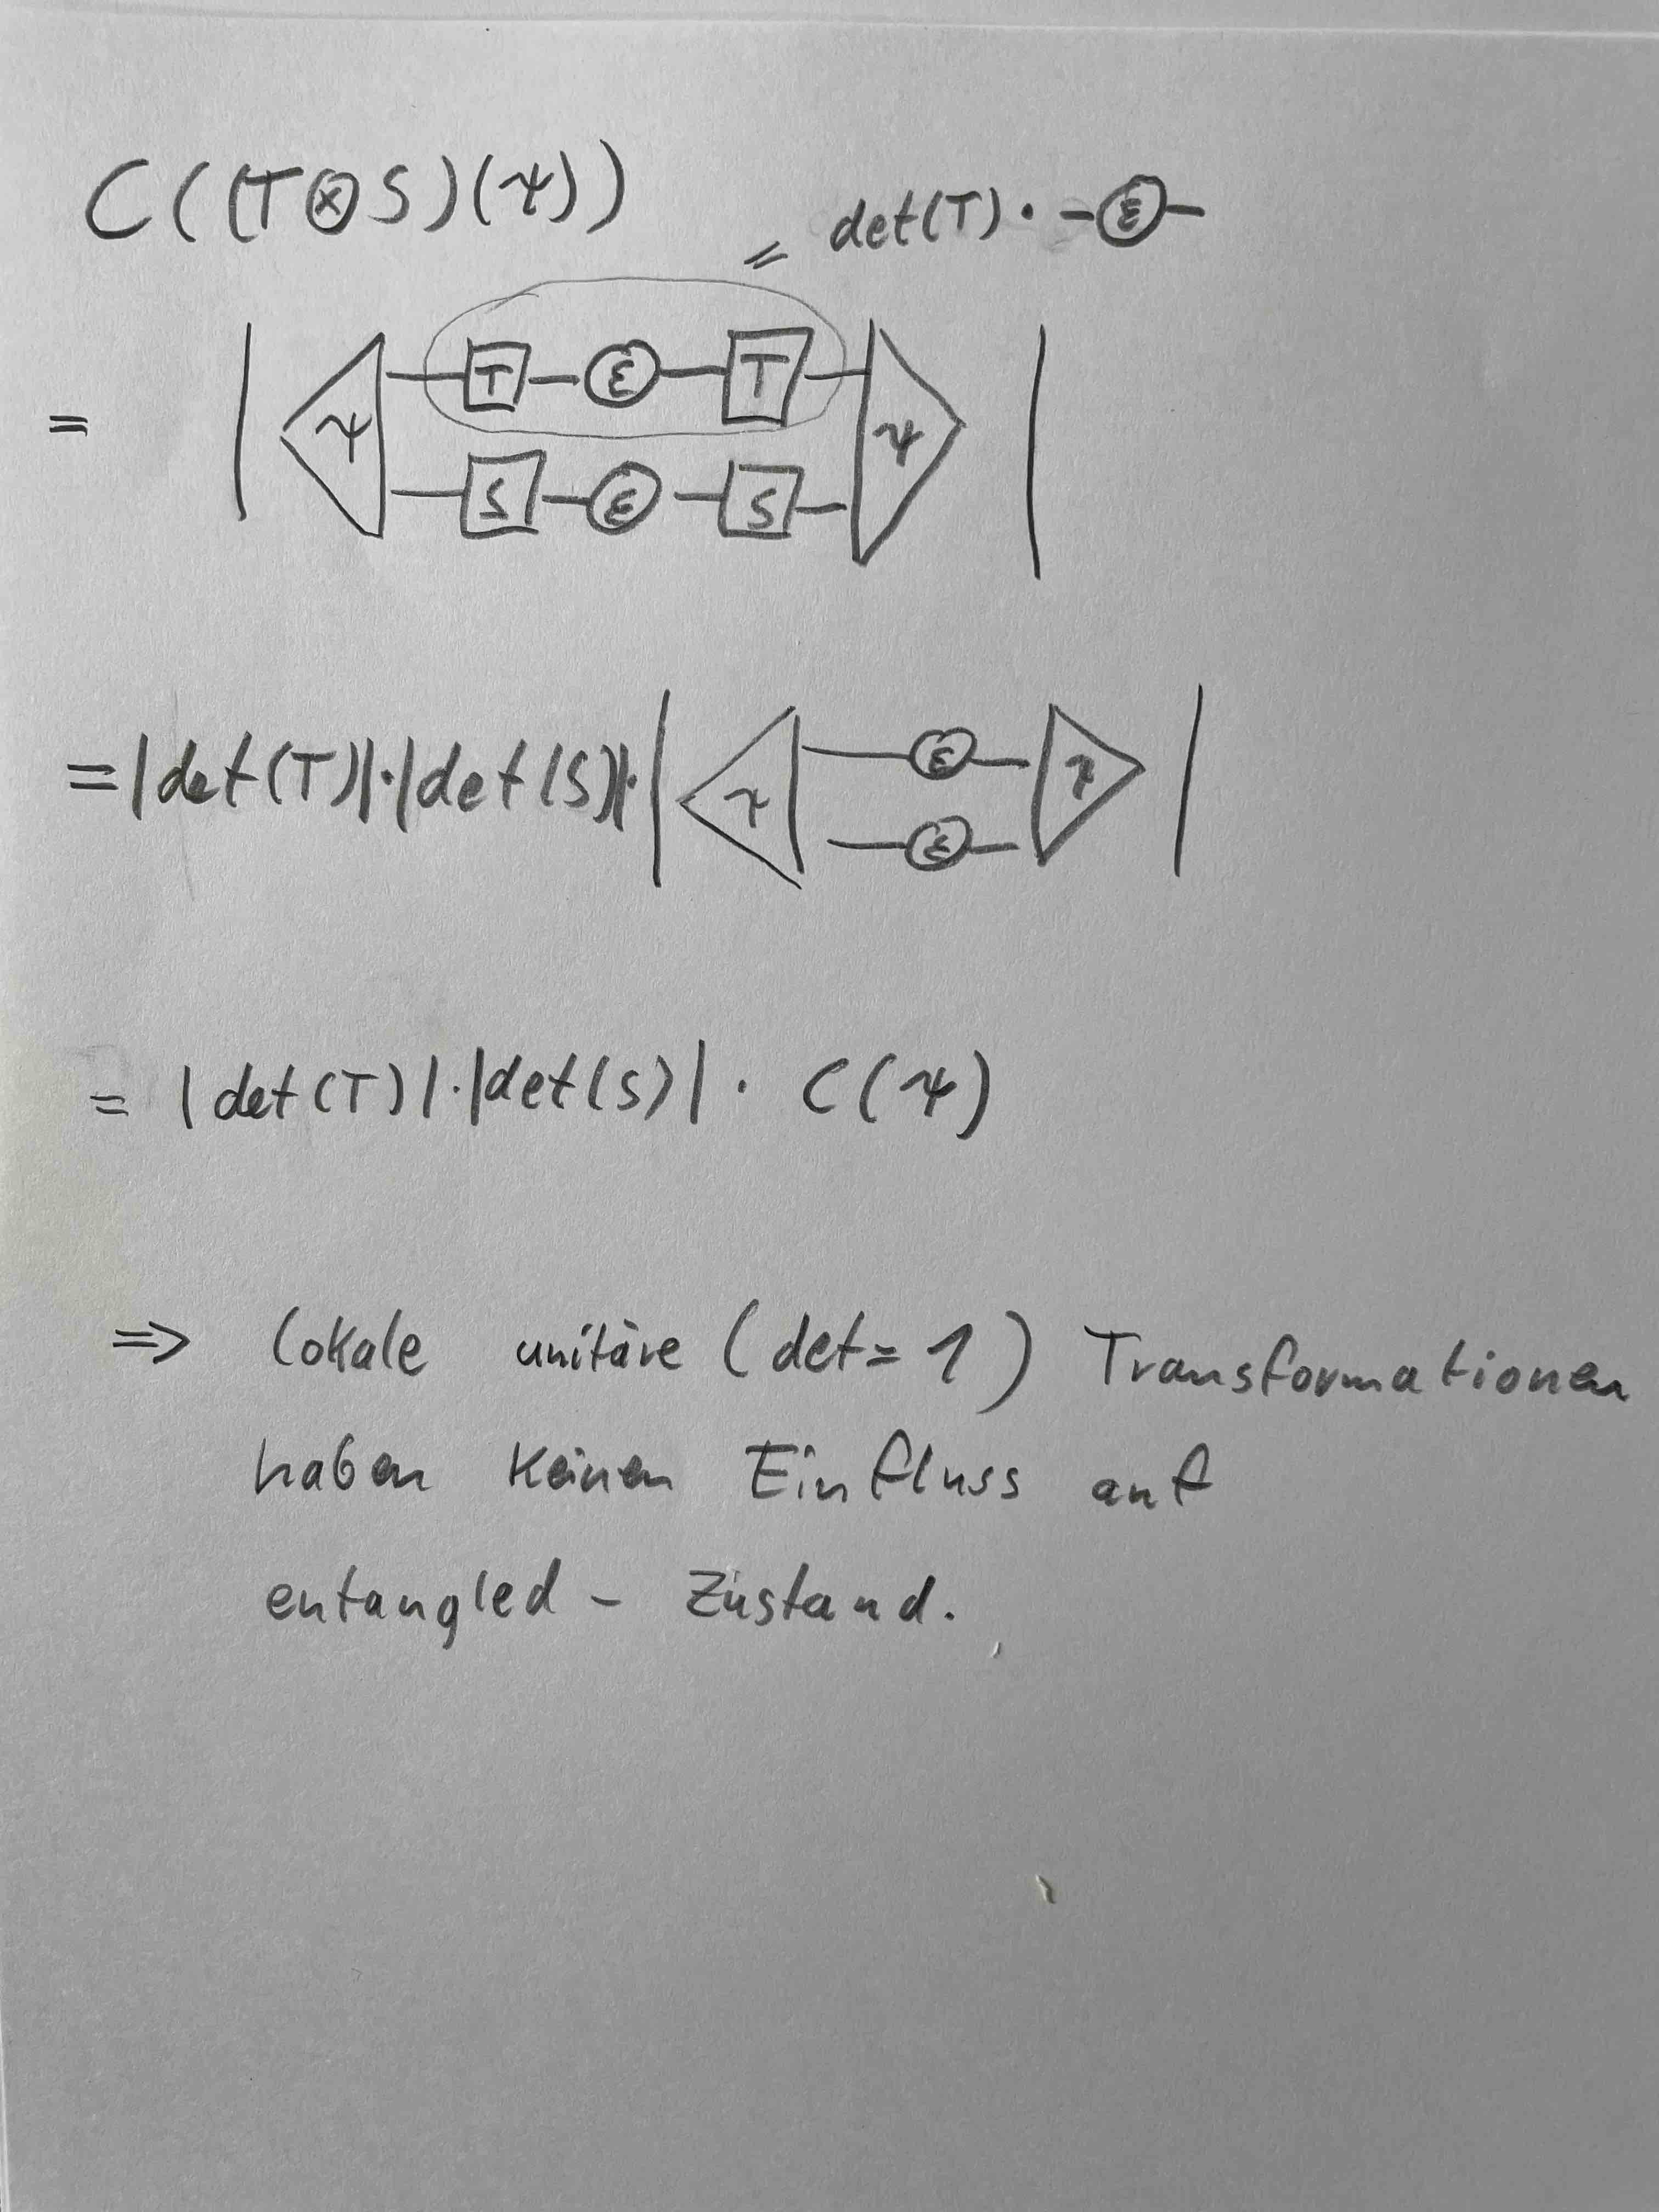 C((T⊗S)(ψ))
= det(T) · -ε-
= | ψ T ε T ψ |
S ε S
= |det(T)|·|det(S)|· | ψ ε ψ |
ε
= |det(T)|·|det(S)| · C(ψ)
=> Lokale unitäre (det=1) Transformationen
haben keinen Einfluss auf
entangled - Zustand.